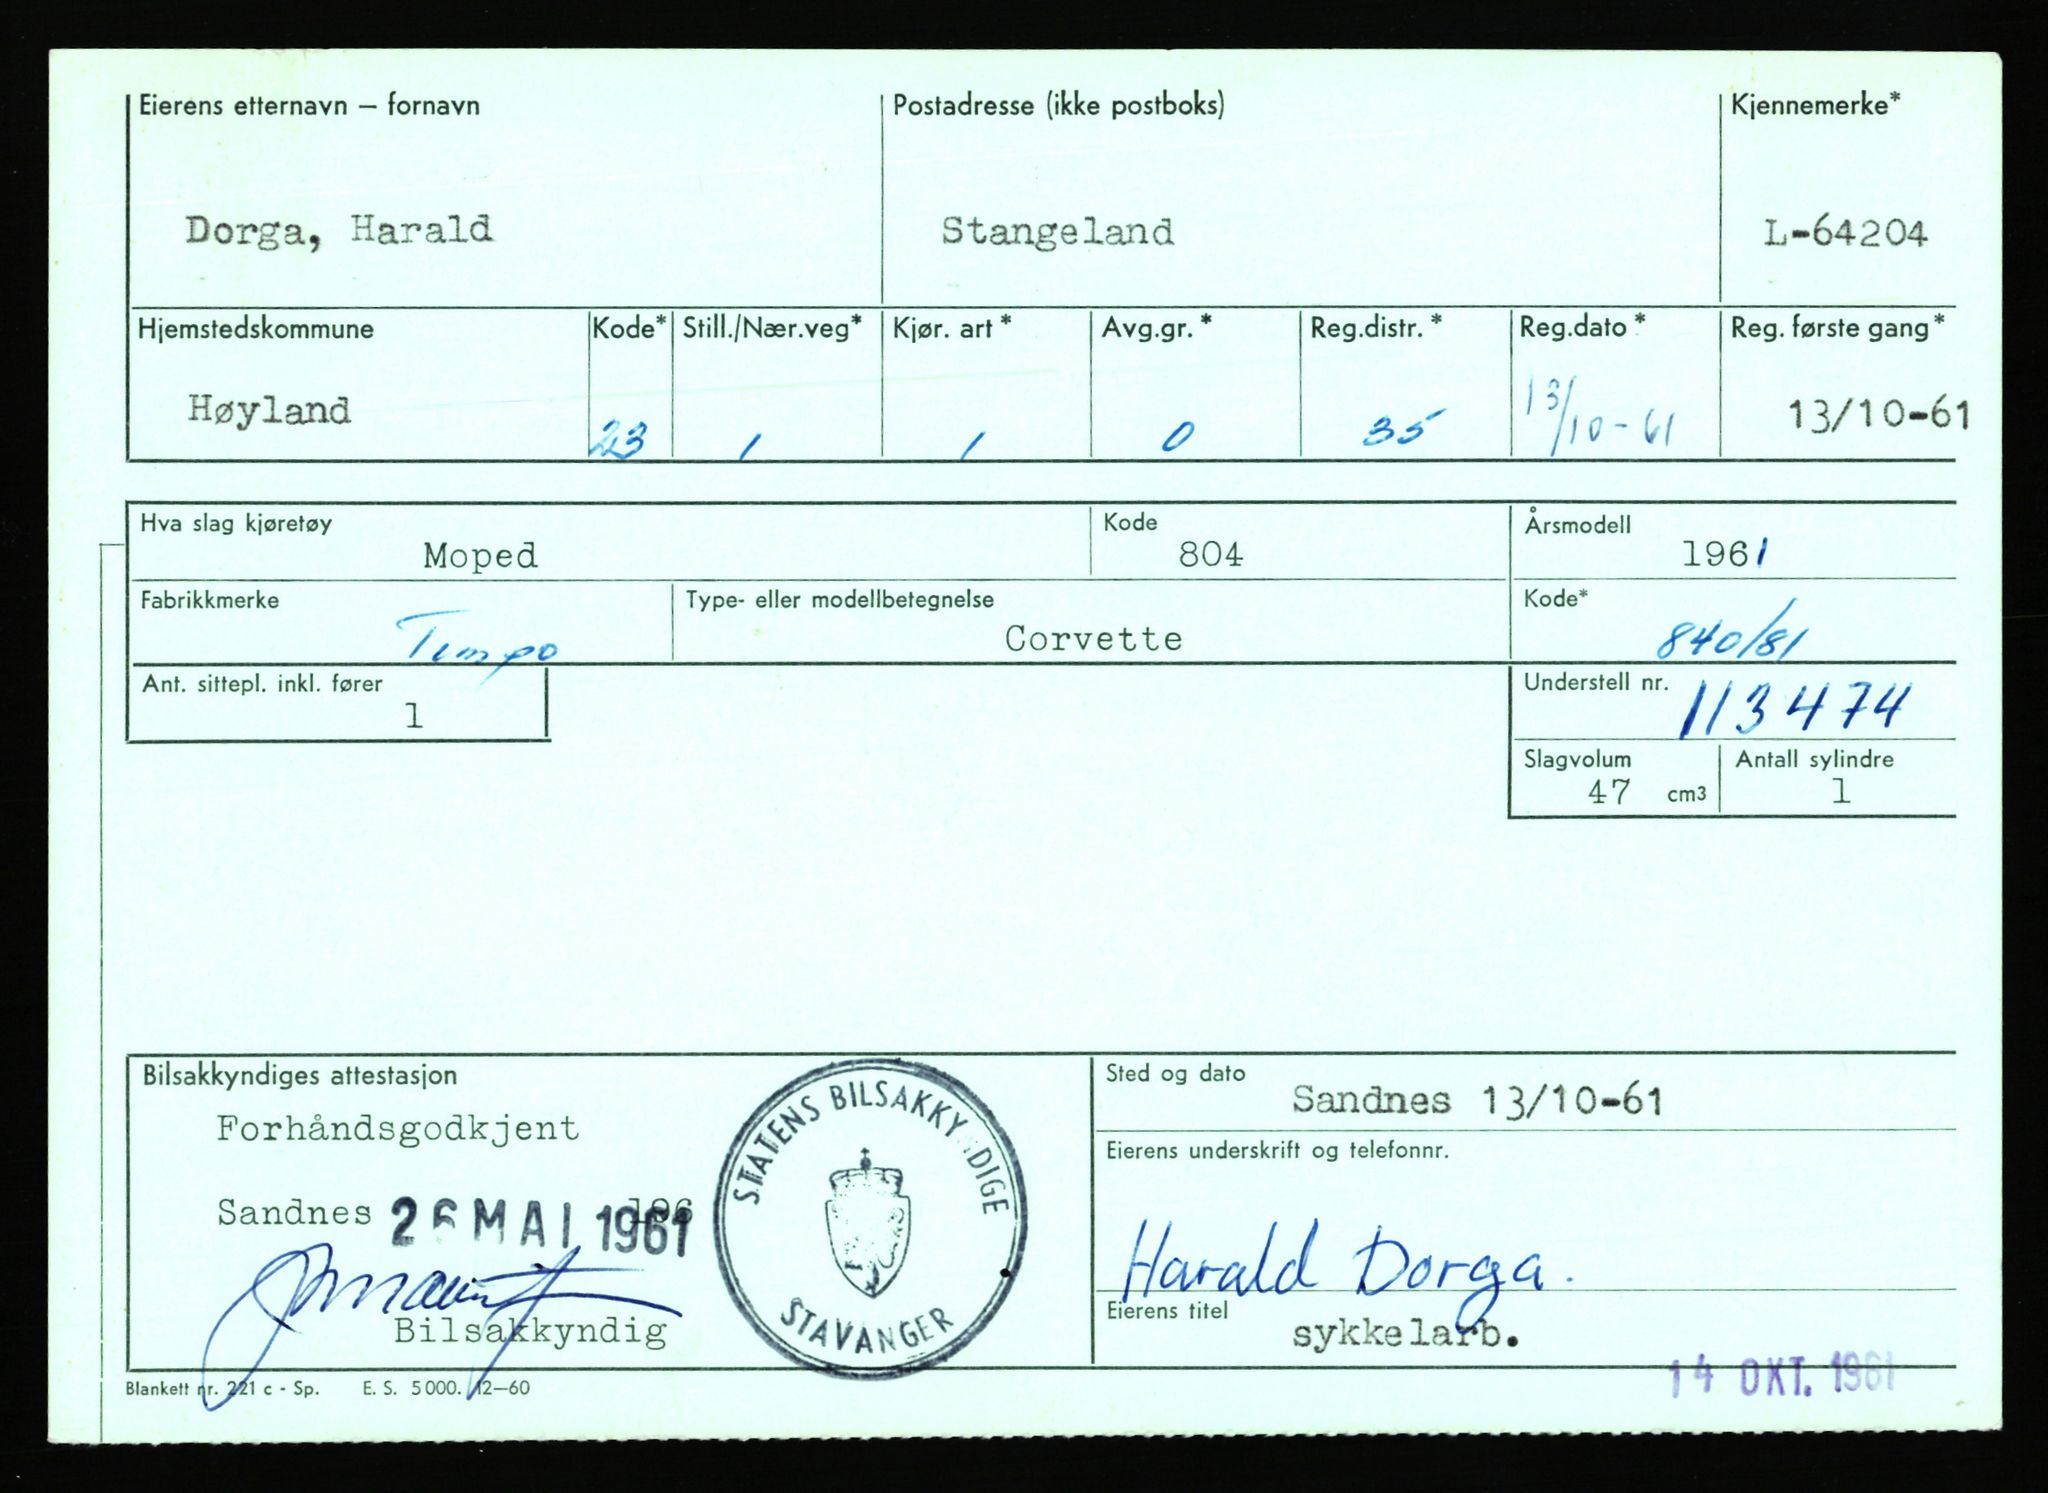 Eierens etternavn – fornavn Postadresse (ikke postboks) Kjennemerke*
Dorga, Harald Stangeland L-64204
Hjemstedskommune Kode* Still./Nær.veg* Kjør. art* Avg.gr.* Reg.distr.* Reg.dato* Reg. første gang*
Høyland 23 1 1 0 35 13/10-61 13/10-61
Hva slag kjøretøy Kode Årsmodell
Moped 804 1961
Fabrikkmerke Type- eller modellbetegnelse Kode*
Tempo Corvette 840/81
Ant. sittepl. inkl. fører Understell nr.
1 113474
Slagvolum Antall sylindre
47 cm3 1
Bilsakkyndiges attestasjon Sted og dato
Sandnes 13/10-61
Forhåndsgodkjent
Eierens underskrift og telefonnr.
Sandnes 26 MAI 1961
STATENS BILSAKKYNDIGE
STAVANGER
Harald Dorga.
Eierens titel
Bilsakkyndig sykkelarb.
14 OKT. 1961
Blankett nr. 221 c - Sp. E. S. 5000. 12–60